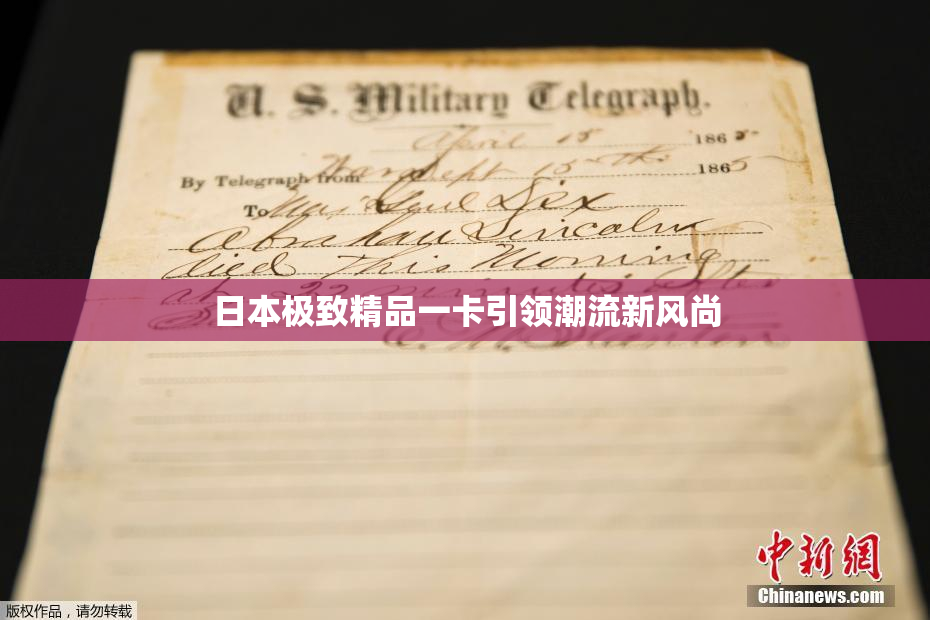 U. S. Military Telegraph.
April 15 1865
By Telegraph from War Dept 15th 1865
To Maj Genl Dix
Abraham Lincoln
died this Morning
at 22 minutes after
日本极致精品一卡引领潮流新风尚
E. M. Stanton
中新網
Chinanews.com
版权作品，请勿转载